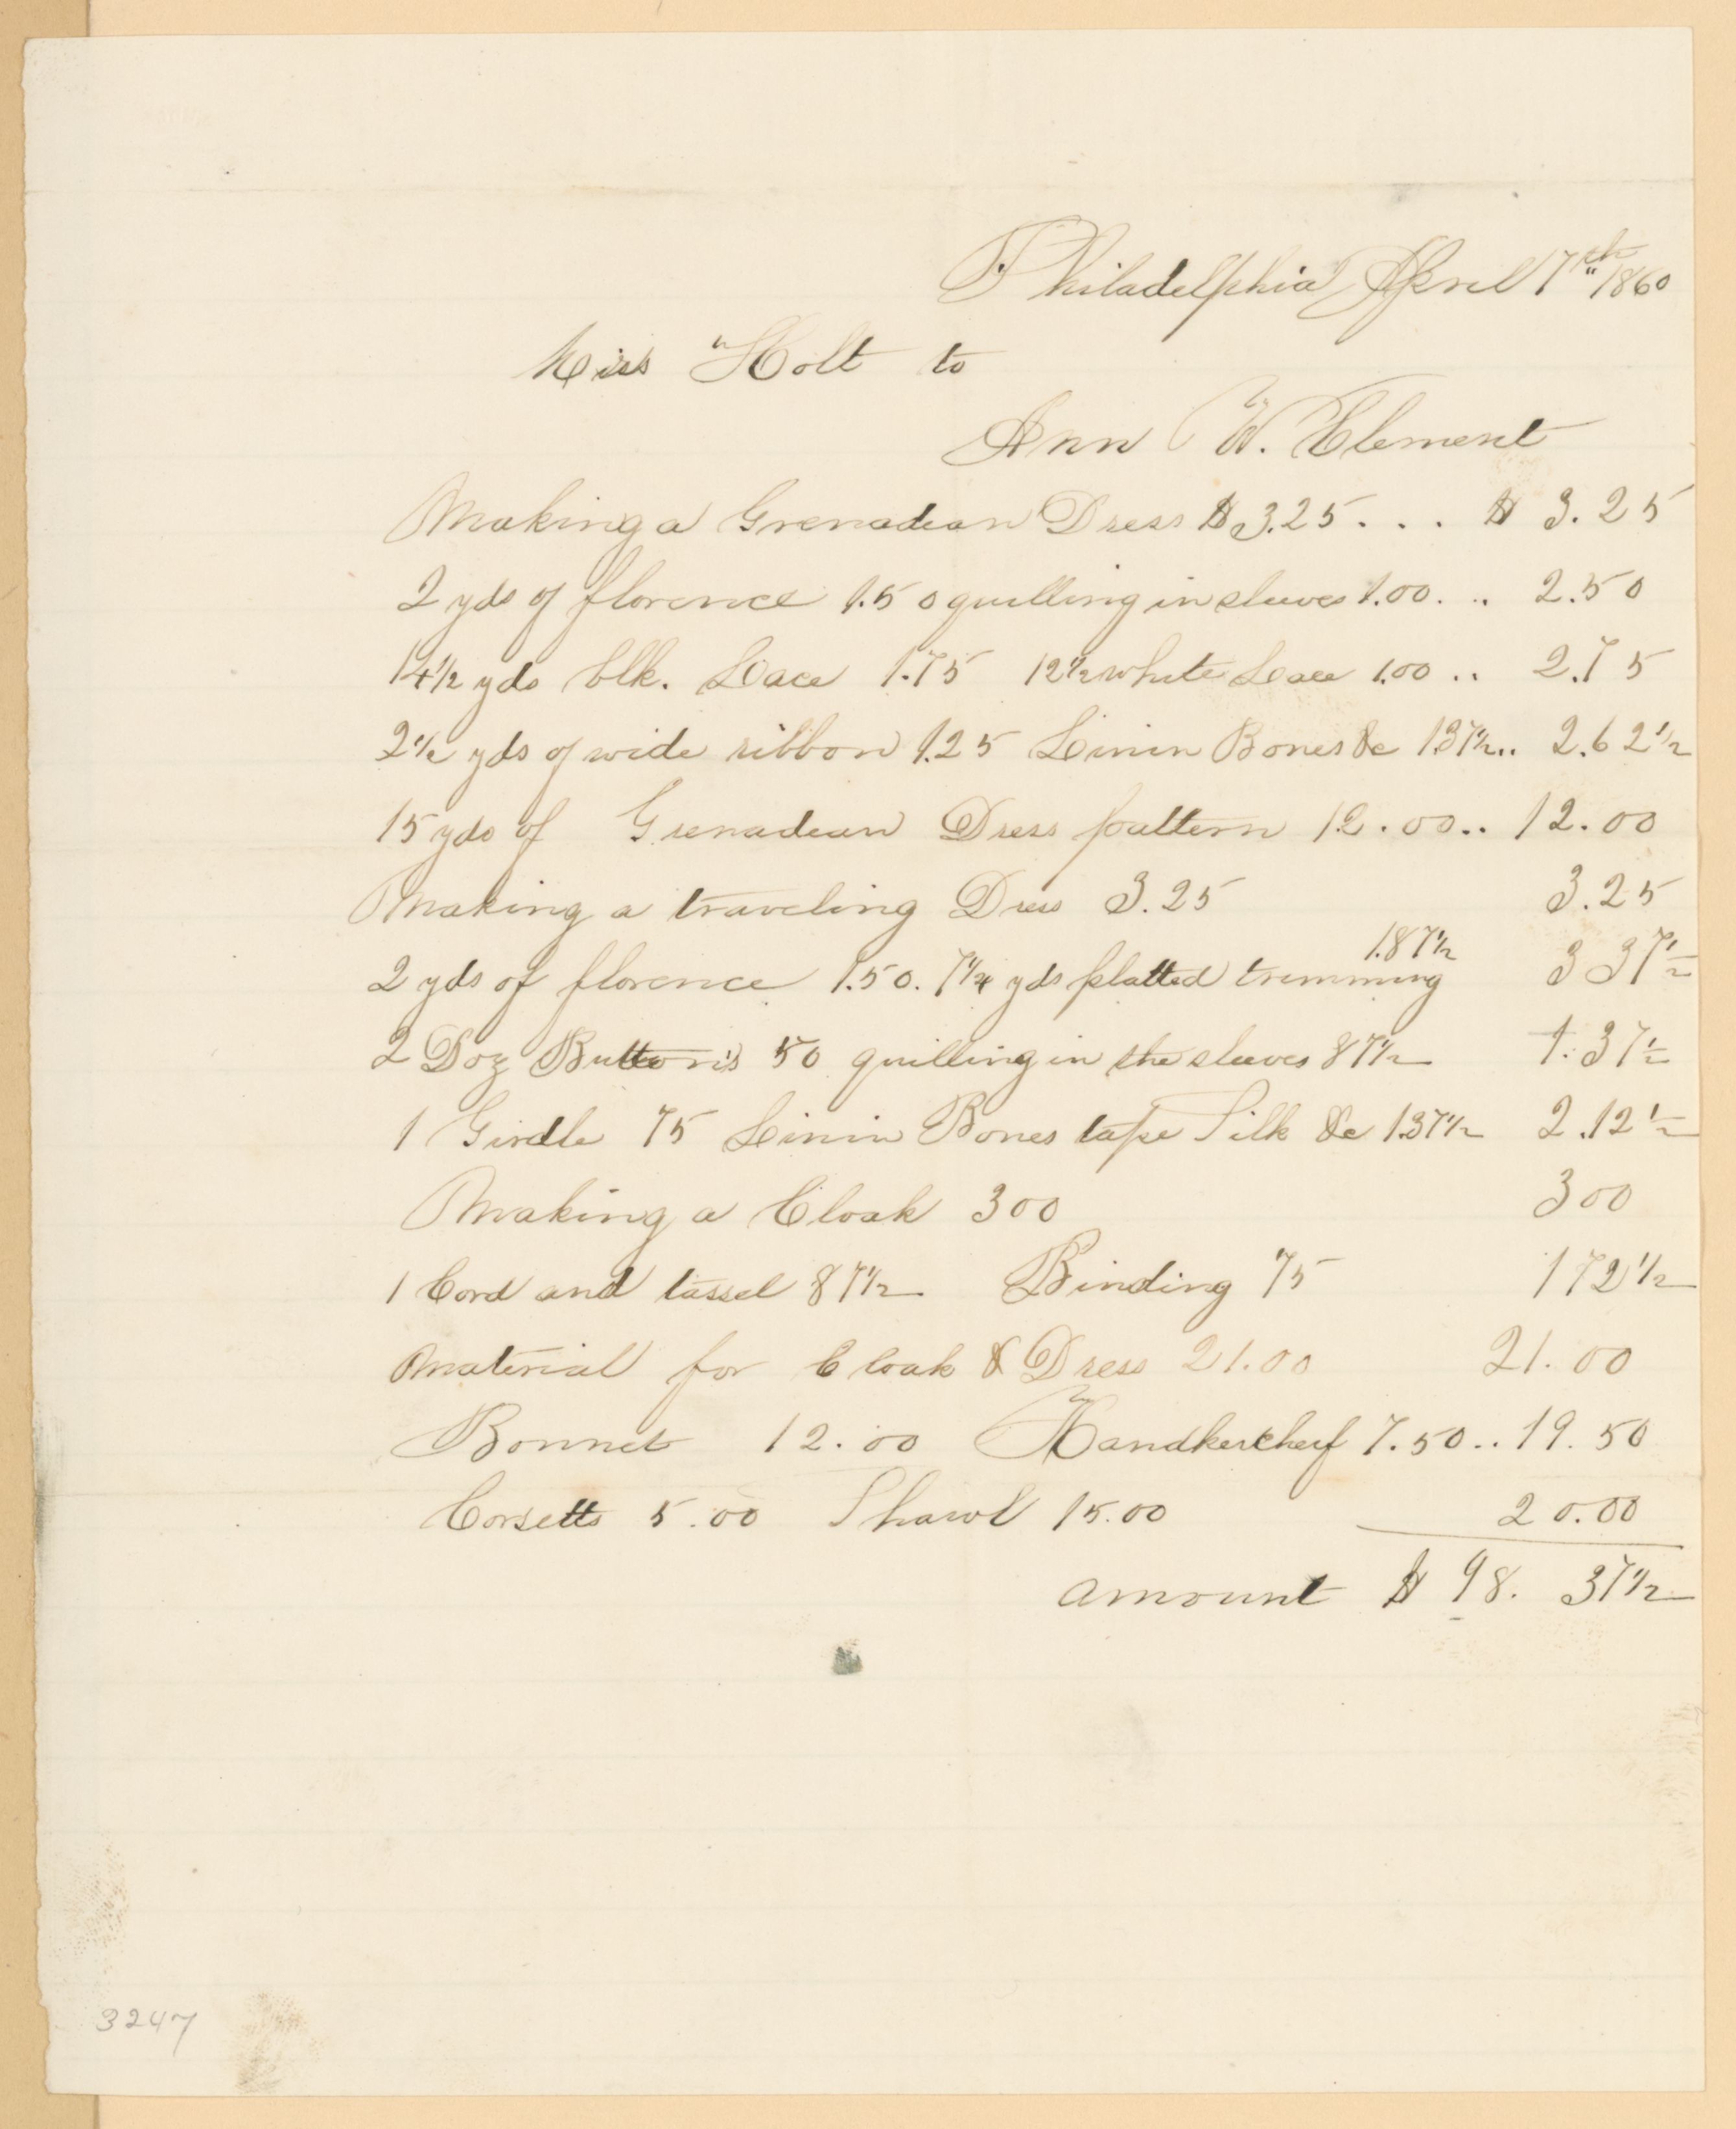 Philadelphia April 17th " 1860
Miss Holt to
Ann W. Clement
Making a Grenadean Dress $3.25 . . . $ 3.25
2 yds of florence 1.50 quilling in sleeves 1.00 . .. 2.50
14 1/2 yds blk. Lace 1.75 12 1/2 white Lace 1.00 .. 2.75
2 1/2 yds of wide ribbon 1.25 Linin Bones &c 1.37 1/2 .. 2.62 1/2
15 yds of Grenadean Dress pattern 12.00 .. 12.00
Making a traveling Dress 3.25 3.25
2 yds of florence 1.50. 7 1/4 yds platted trimming 1.87 1/2 3 37 1/2
2 Doz Button's 50 quilling in the sleeves 87 1/2 1.37 1/2
1 Girdle 75 Linin Bones tape Silk &c 1.37 1/2 2.12 1/2
Making a Cloak 300 300
1 Cord and tassel 87 1/2 Binding 75 172 1/2
Material for Cloak & Dress 21.00 21.00
Bonnet 12.00 Handkercheif 7.50 .. 19.50
Corsetts 5.00 Shawl 15.00 20.00
amount $ 98. 37 1/2
3247